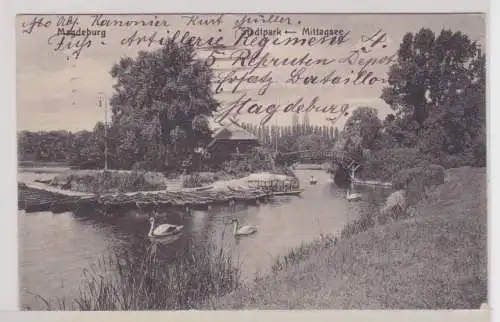 Abs. Kanonier Kurt Müller.
Magdeburg
Stadtpark — Mittagsee
Fuss. Artillerie Regiment 4.
5 Rekruten Depot
Ersatz Bataillon
Magdeburg.